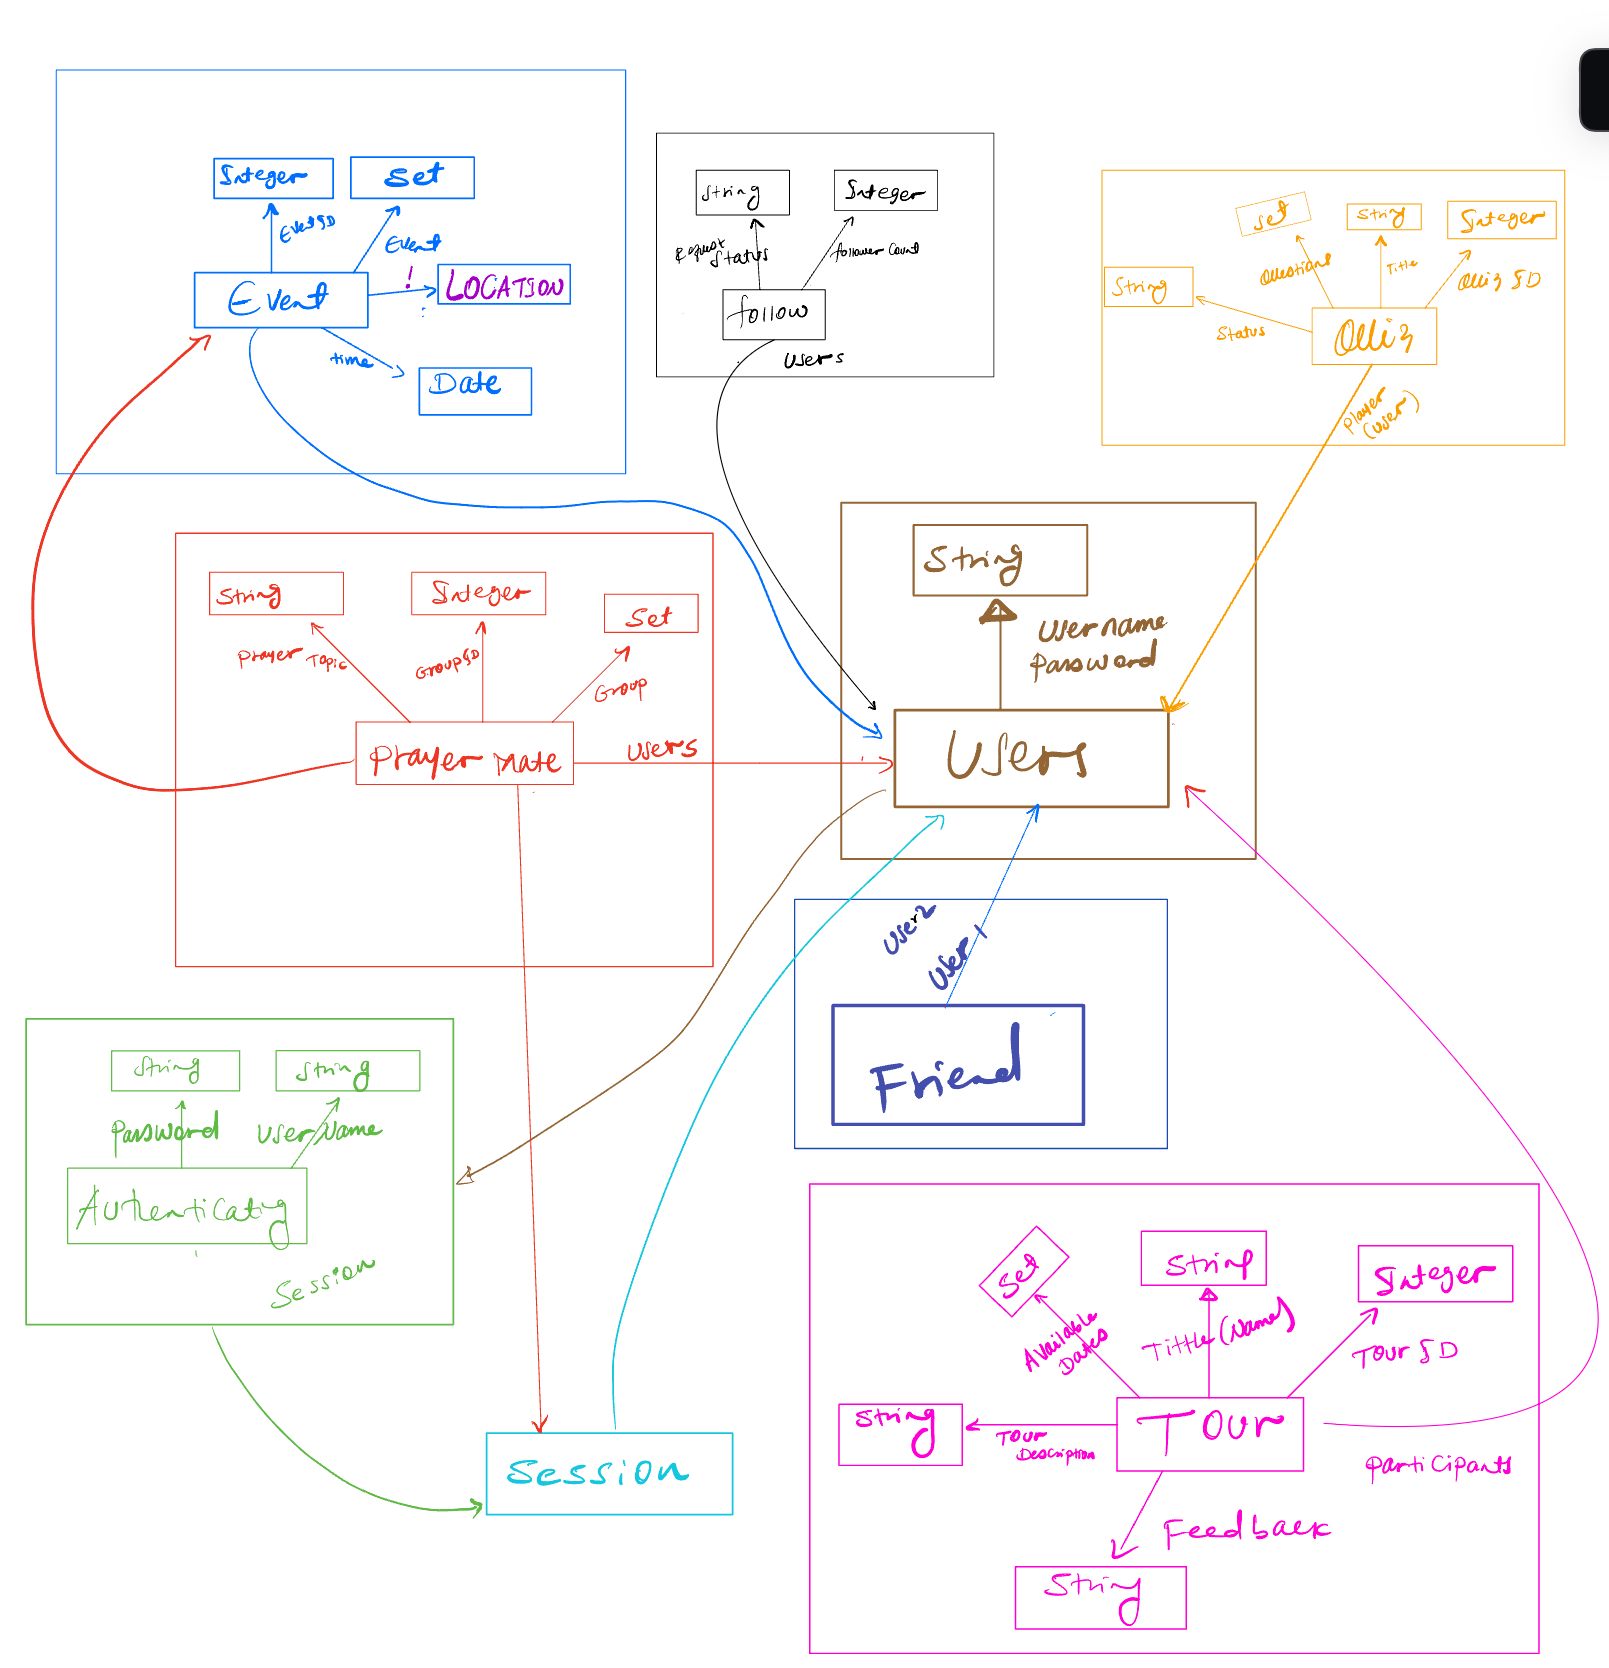 Integer
Set
EventID
Event
!
Event
LOCATION
time
Date
String
Integer
Request
Status
follower Count
follow
Users
Set
String
Integer
String
Questions
Title
Quiz ID
Status
Quiz
Player
(User)
String
Integer
Set
Prayer Topic
GroupID
Group
Prayer Mate
Users
String
Username
Password
Users
User2
User1
Friend
String
String
Password
UserName
Authenticating
Session
Session
Set
String
Integer
Available
Dates
Tittle (Name)
Tour ID
String
Tour
Description
Tour
participants
Feedback
String